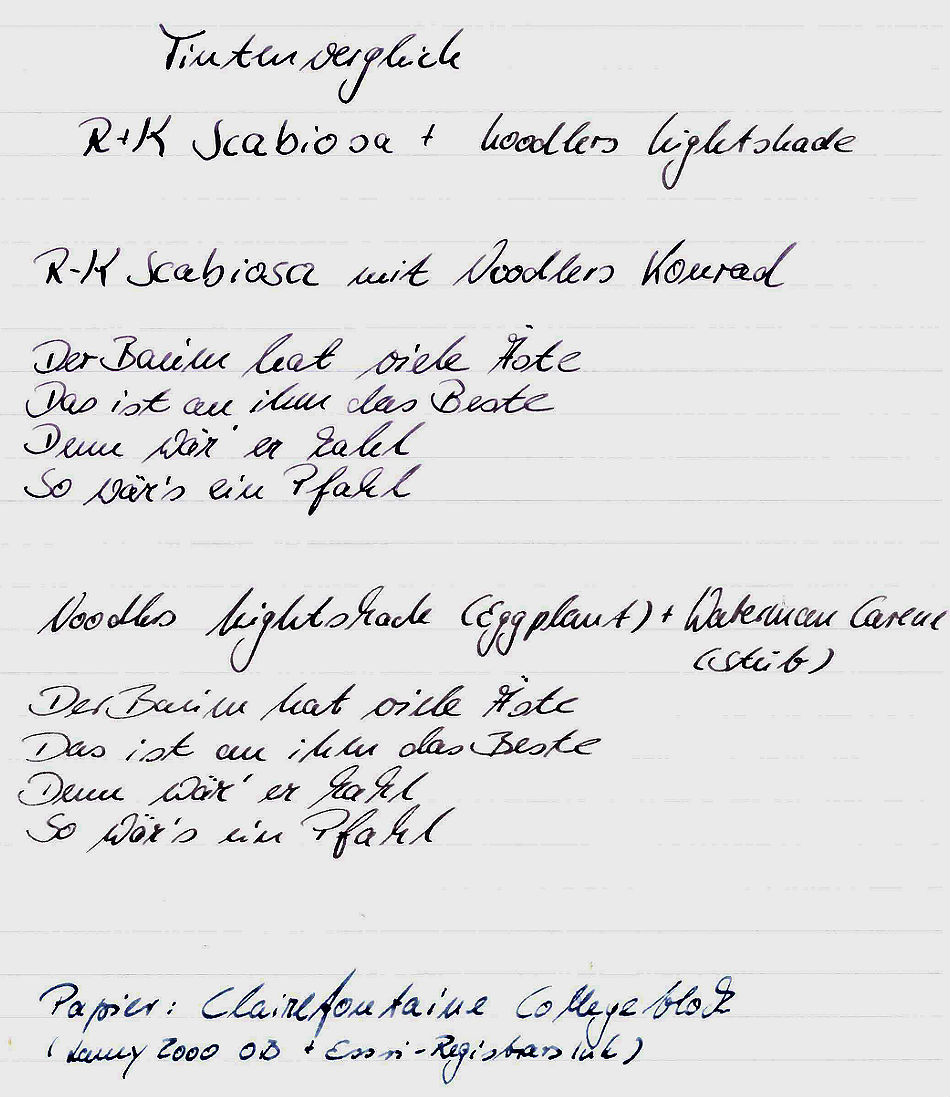 Tintenvergleich
R+K Scabiosa + Noodlers Nightshade
R-K Scabiosa mit Noodlers Konrad
Der Baum hat viele Äste
Das ist an ihm das Beste
Denn wär' er kahl
So wär's ein Pfahl
Noodlers Nightshade (Eggplant) + Waterman Carene
(Stub)
Der Baum hat viele Äste
Das ist an ihm das Beste
Denn wär' er kahl
So wär's ein Pfahl
Papier: Clairefontaine Collegeblock
(Lamy 2000 OB + Essri-Registrars Ink)